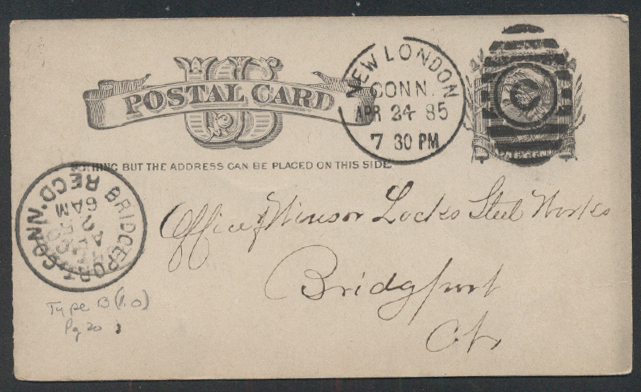 US
POSTAL CARD
NOTHING BUT THE ADDRESS CAN BE PLACED ON THIS SIDE.
NEW LONDON
CONN.
APR 24 85
7 30 PM
BRIDGEPORT, CONN.
REC'D.
6 AM
Office Winsor Locks Steel Works
Bridgport
Ct.
Type B (1.0)
Pg 20